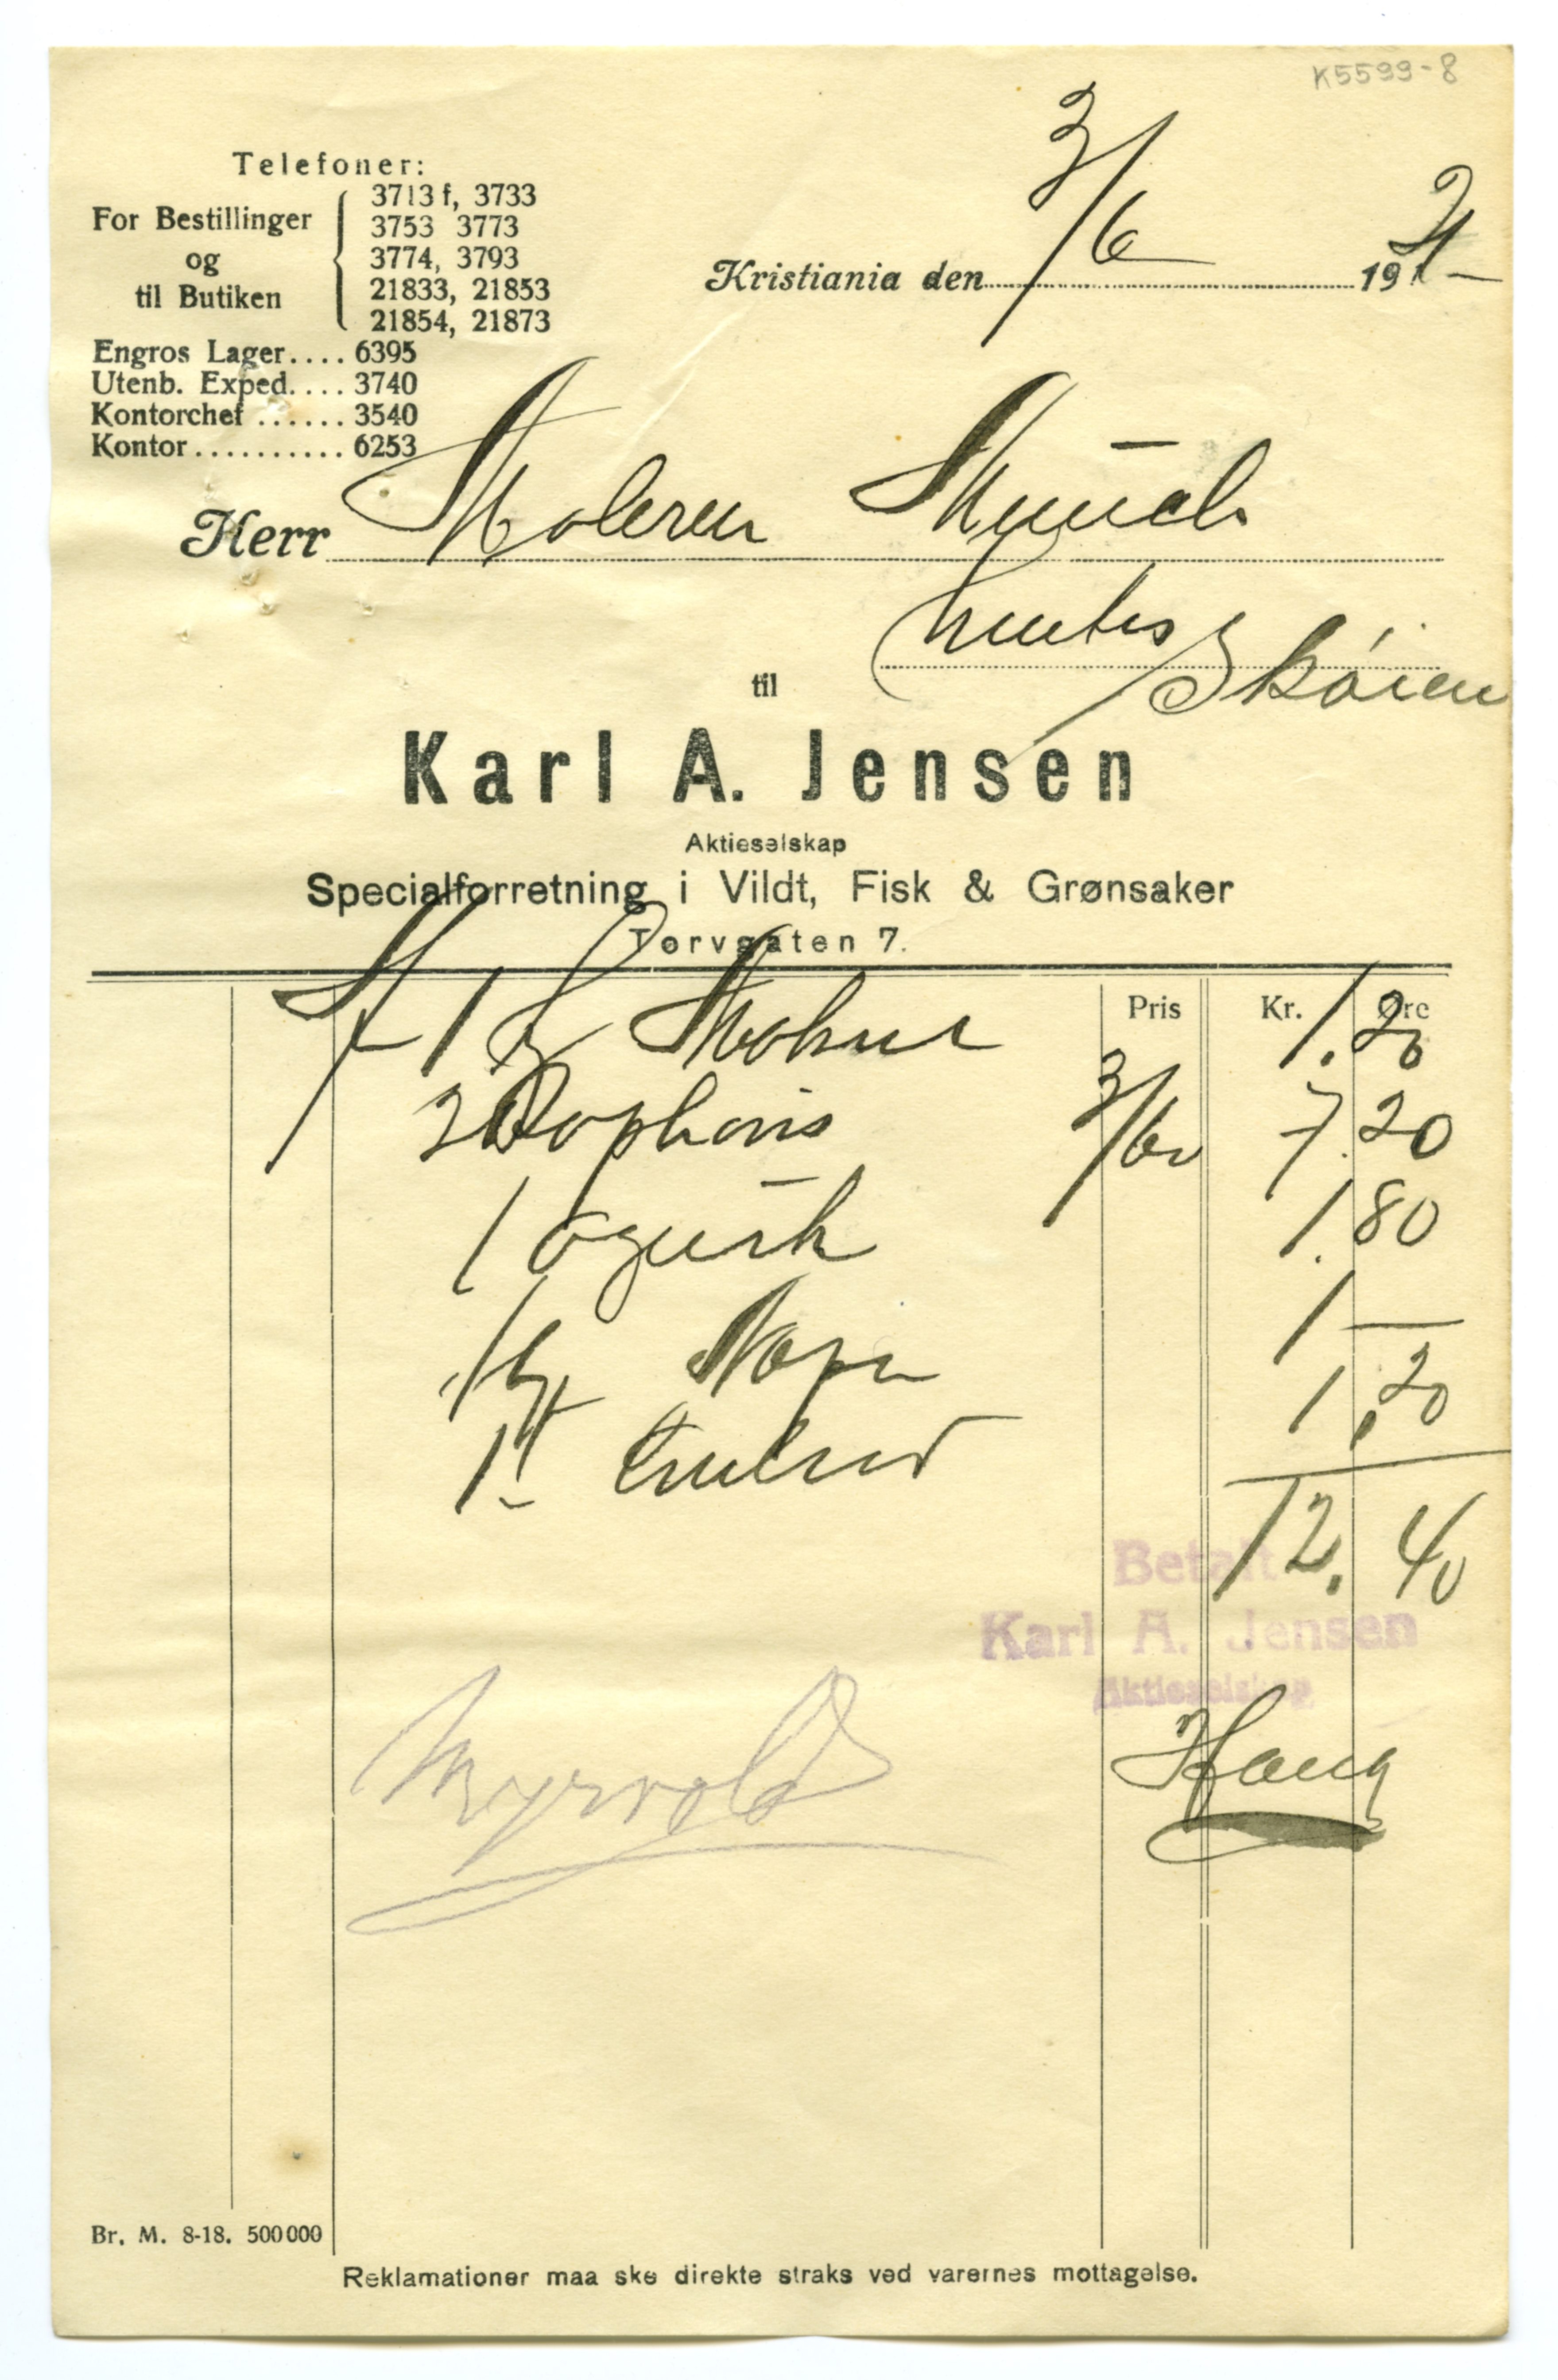 K5599-8
Telefoner:
For Bestillinger og til Butiken
3713 f, 3733
3753 3773
3774, 3793
21833, 21853
21854, 21873
Engros Lager.... 6395
Utenb. Exped.... 3740
Kontorchef ...... 3540
Kontor.......... 6253
3/6
Kristiania den 1921
Herr Maleren Munch
Skøien
til
Karl A. Jensen
Aktieselskap
Specialforretning i Vildt, Fisk & Grønsaker
Torvgaten 7.
Pris Kr. Øre
1 1.20
2 3/60 7.20
1 Agurk 1.80
1 1 —
1 1.20
12.40
Betalt
Karl A. Jensen
Aktieselskap
Myrvold
Haug
Br. M. 8-18. 500000
Reklamationer maa ske direkte straks ved varernes mottagelse.